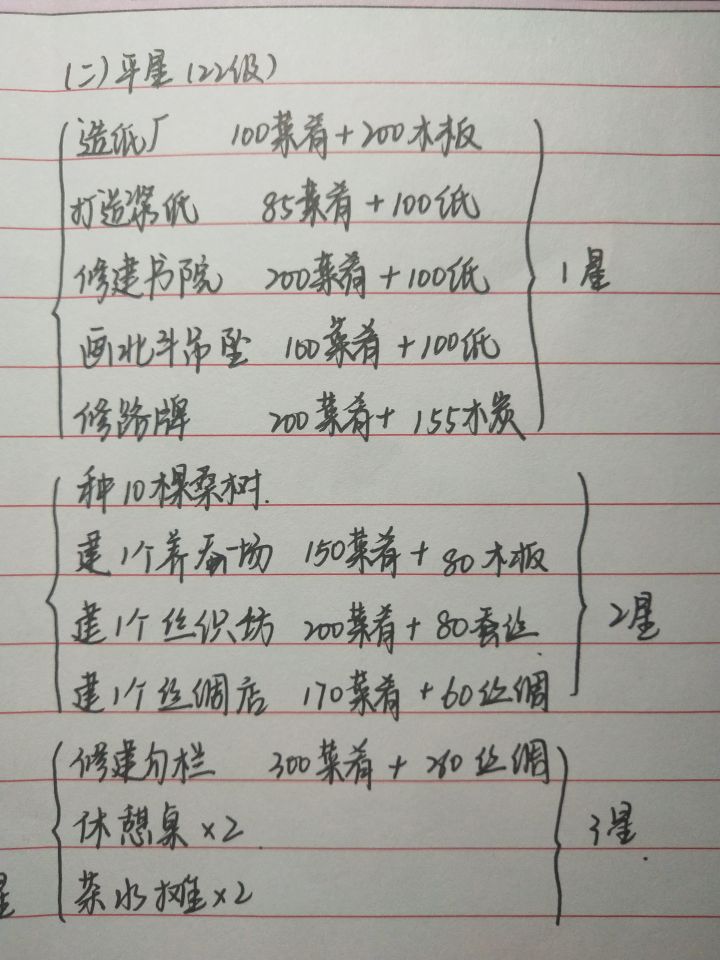 (二)平星(22级)
造纸厂 100菜肴+200木板
打造浆纸 85菜肴+100纸
修建书院 200菜肴+100纸
画北斗吊坠 100菜肴+100纸
修路牌 200菜肴+155木炭
1星
种10棵桑树.
建1个养蚕场 150菜肴+80木板
建1个丝织坊 200菜肴+80蚕丝.
建1个丝绸店 170菜肴+60丝绸
2星
修建勾栏 300菜肴+260丝绸
休憩桌×2
茶水摊×2
3星.
星